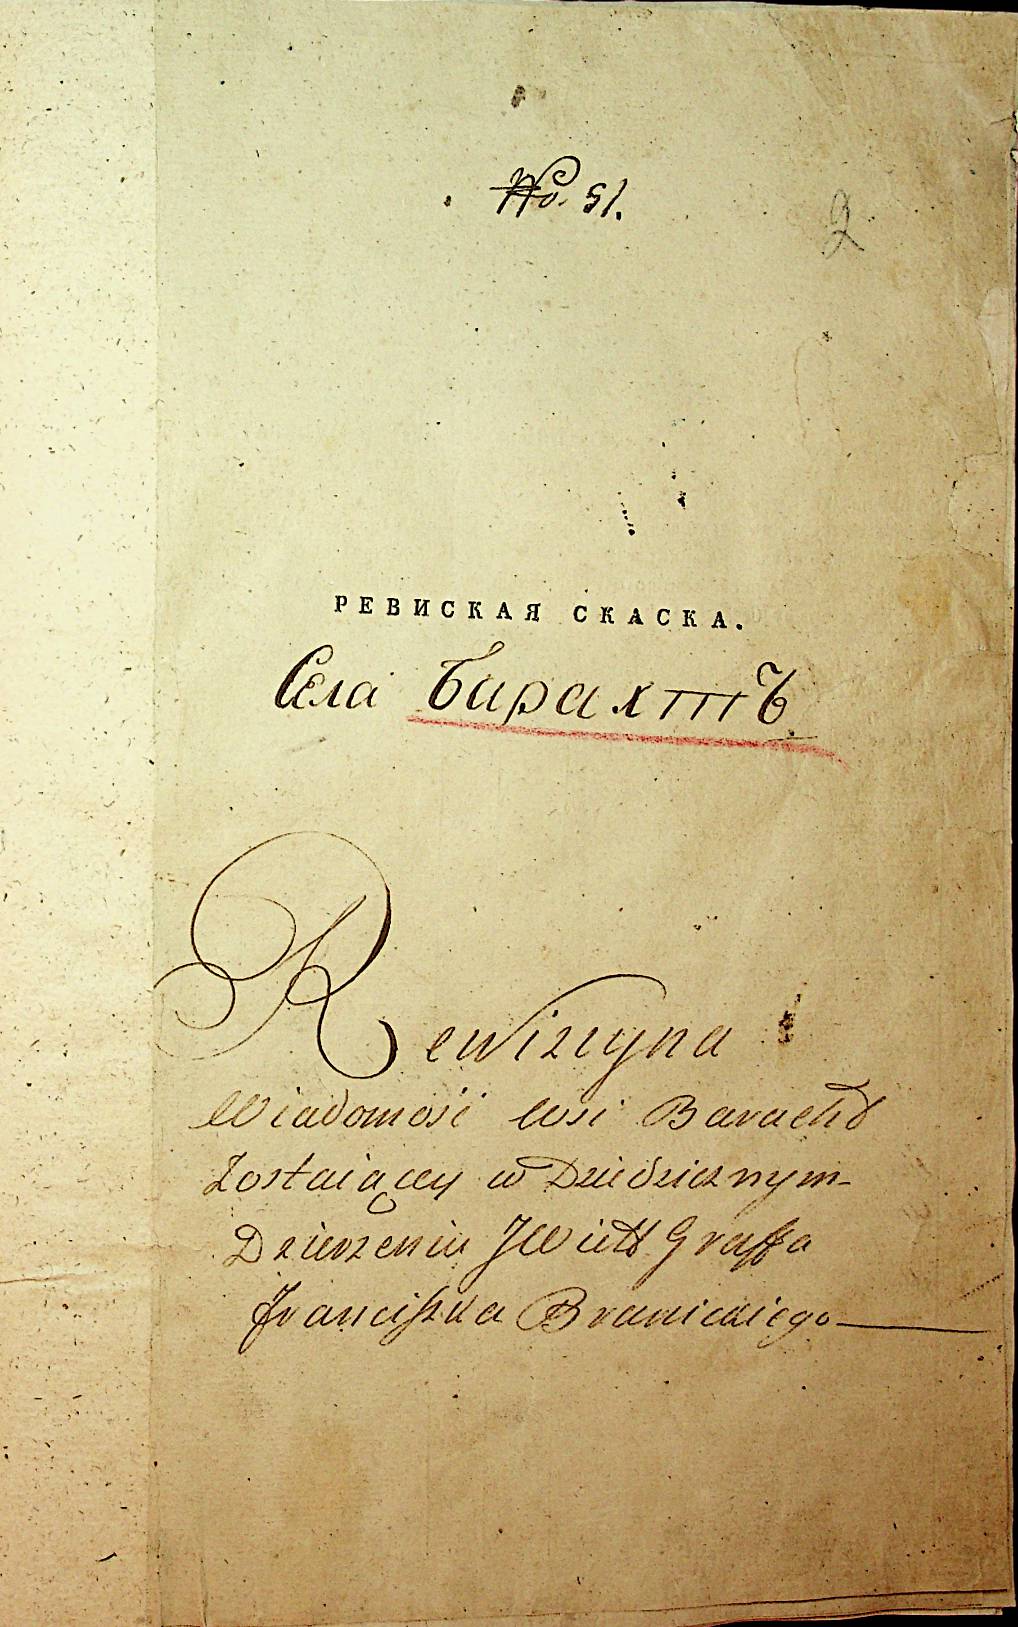 No. 51.
2
РЕВИСКАЯ СКАСКА.
Села Барахтъ
Rewizyyna
Wiadomość Wsi Baracht
Zostaiącey w Dziedzicznym
Dzierzeniu JW Graffa
Franciszka Branickiego